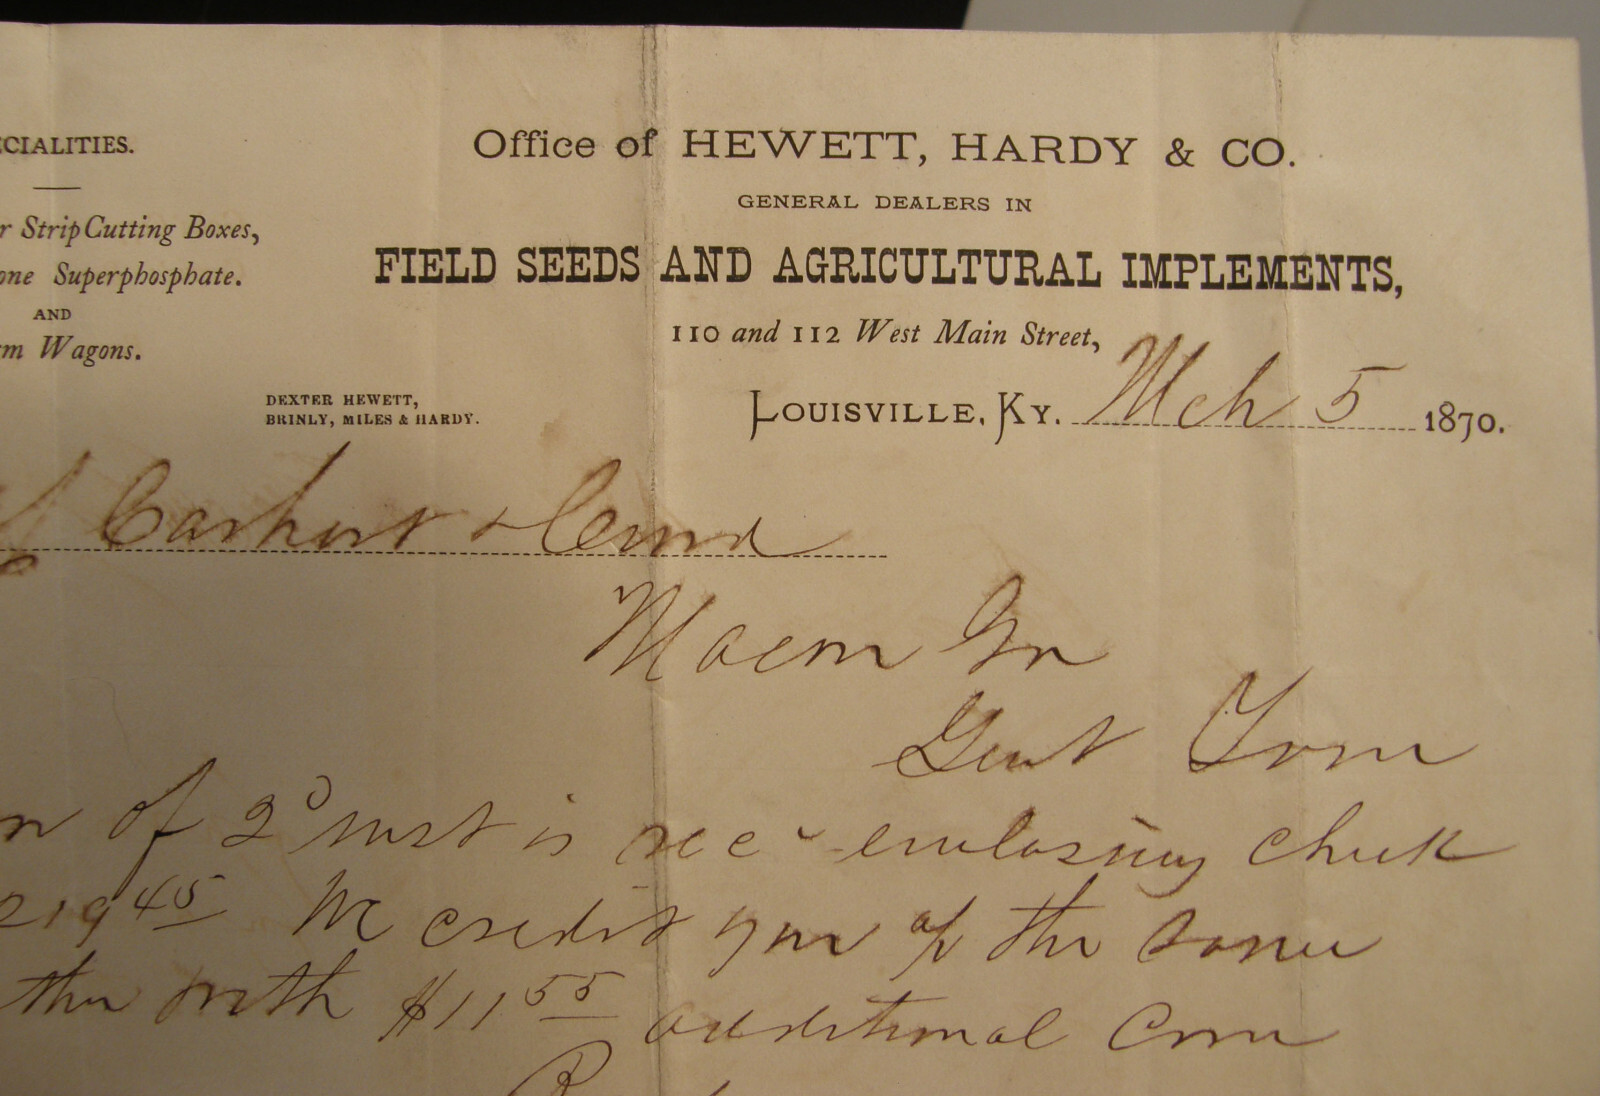 Office of HEWETT, HARDY & CO.
GENERAL DEALERS IN
FIELD SEEDS AND AGRICULTURAL IMPLEMENTS,
110 and 112 West Main Street,
LOUISVILLE, KY. Mch 5 1870.
CIALITIES.
r Strip Cutting Boxes,
one Superphosphate.
AND
m Wagons.
DEXTER HEWETT,
BRINLY, MILES & HARDY.
Carhart & Curd
Macon Ga
Gent
of 2d inst is recd enclosing check
219 45 We credit your a/c the same
with $11 55 additional Com